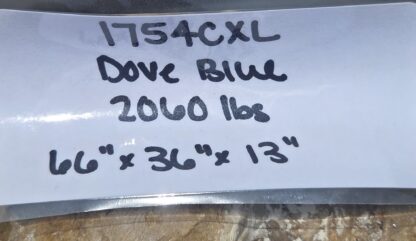 1754CXL
Dove Blue
2060 lbs
66" x 36" x 13"